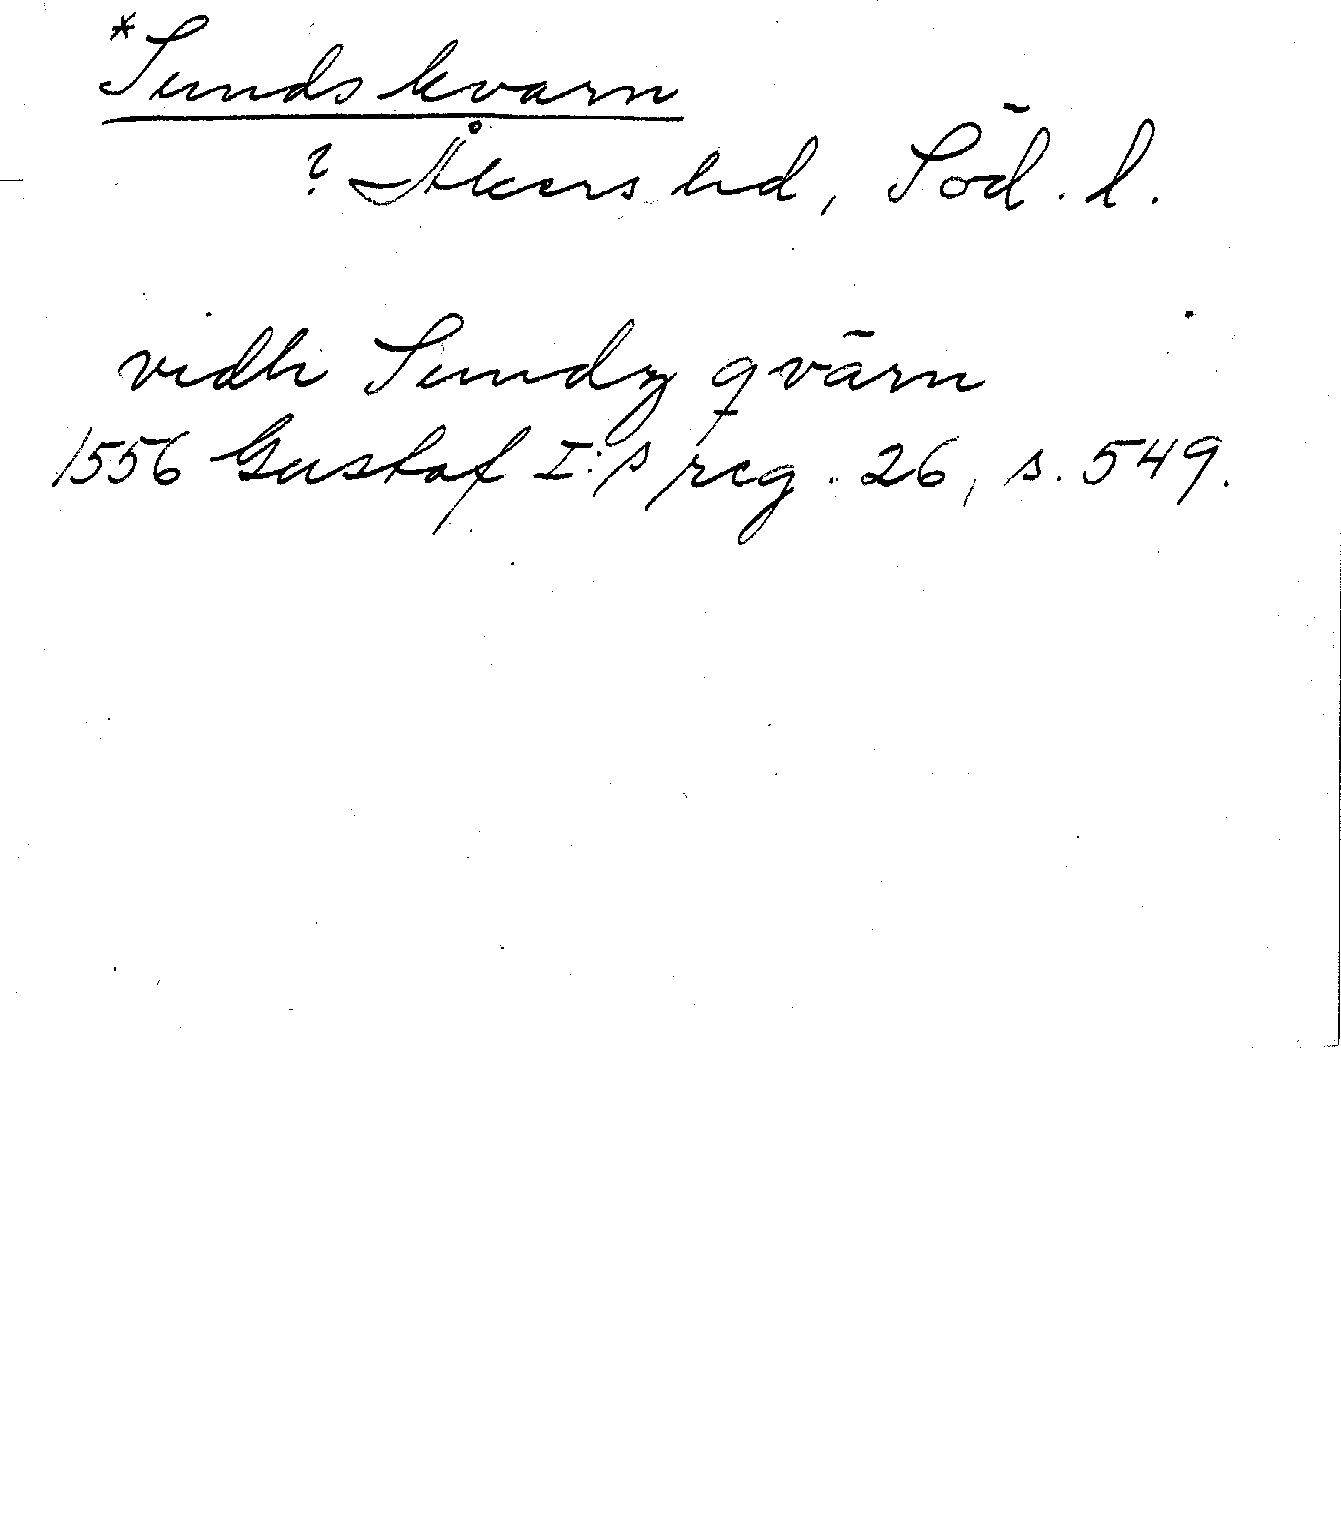 *Sundskvarn
? Åkers hd, Söd. l.
vidh Sundz qvärn
1556 Gustaf I:s reg. 26, s. 549.